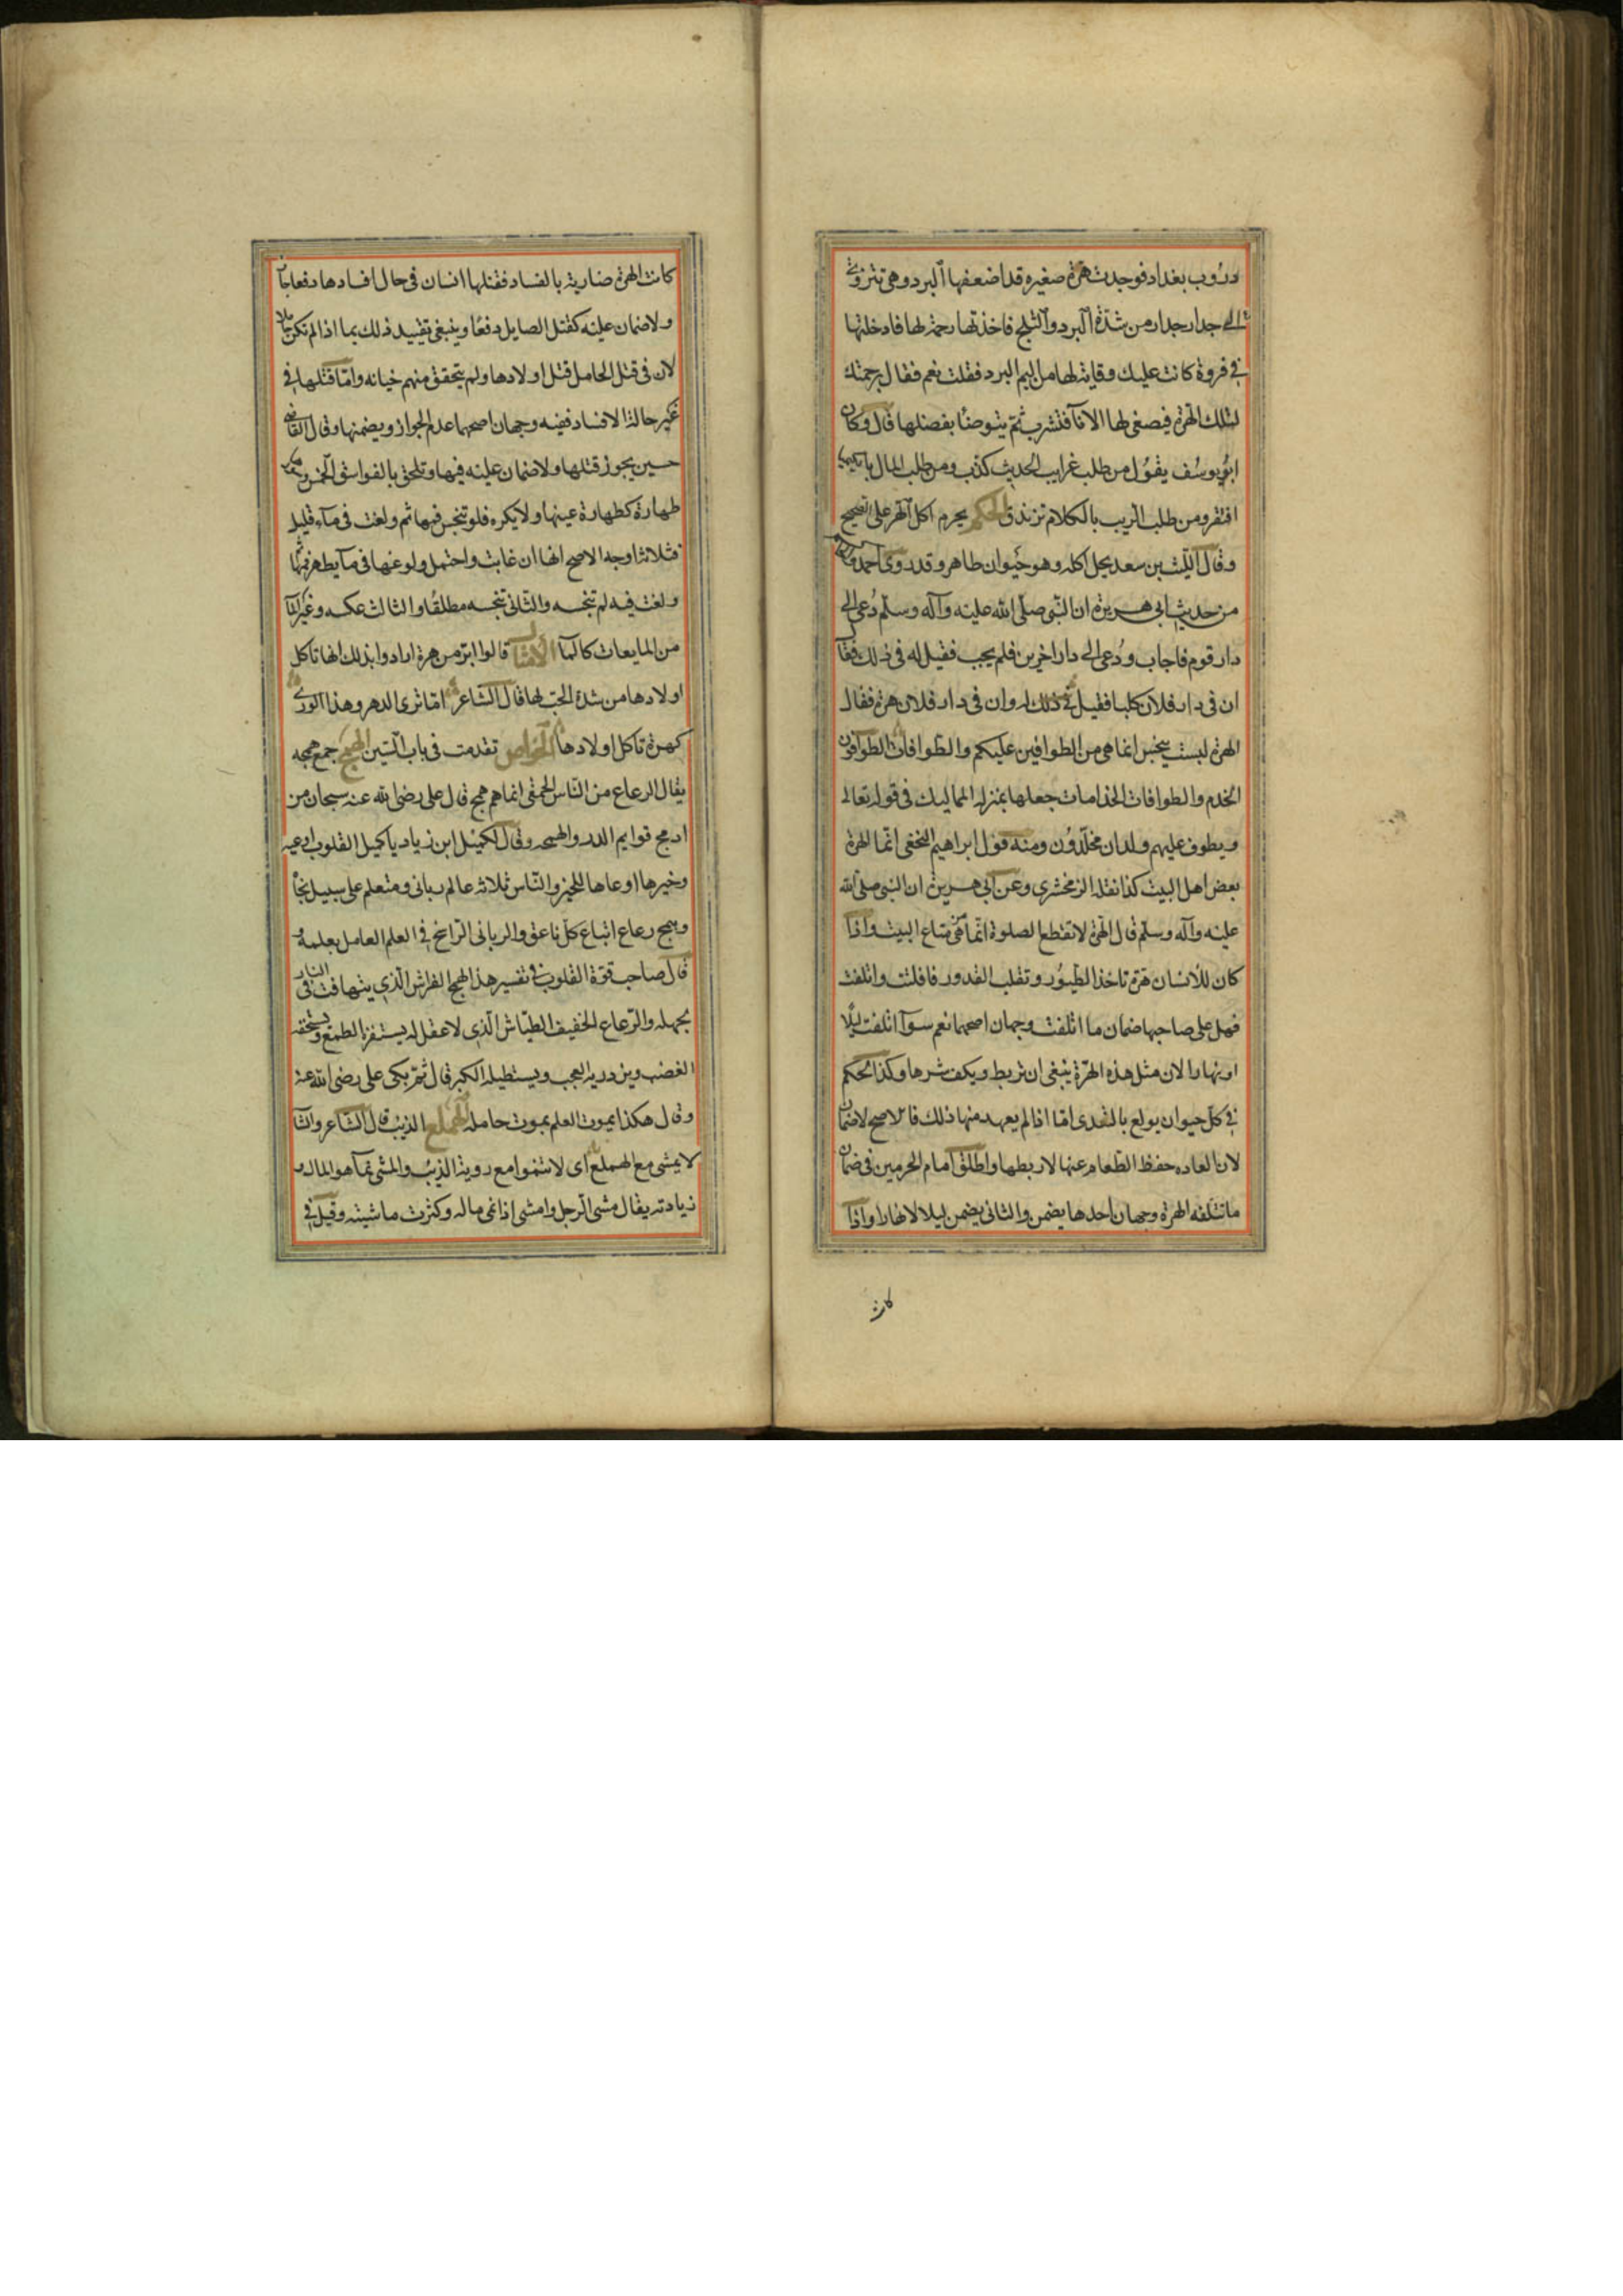 دروب بغداد فوجدت هرة صغيره قد اضعفها البرد وهى تنزوى
الى جدار جدار من شدة البرد والثلج فاخذتها رحمة لها فادخلتها
فى فروة كانت عليك وقاية لها من اليم البرد فقلت نعم فقال برحمتك
لتلك الهرة فيصغى لها الانآ فتشرب ثم يتوضا بفضلها قال وكان
ابويوسف يقول من طلب غرايب الحديث كذب ومن طلب المال بالكيميا
افتقر ومن طلب الريب بالكلام تزندق الحكم يحرم اكل الهر على الصحيح
وقال الليث بن سعد يحل اكله وهو حيوان طاهر وقد روى احمد
من حديث ابى هريرة ان النبى صلى الله عليه وآله وسلم دعى الى
دار قوم فاجاب ودعى الى دار اخرين فلم يجب فقيل له فى ذلك فقال
ان فى دار فلان كلبا فقيل له وان فى دار فلان هرة فقال
الهرة ليست بنجس انما هى من الطوافين عليكم والطوافات الطوافون
الخدم والطوافات الخدامات جعلها بمنزله المماليك فى قوله تعالى
ويطوف عليهم ولدان مخلدون ومنه قول ابراهيم النخعى انما الهرة
بعض اهل البيت كذا نقله الزمخشرى وعن ابى هريرة ان النبى صلى الله
عليه وآله وسلم قال الهرة لا تقطع الصلوة انما هى متاع البيت واذا
كان للانسان هرة تاخذ الطيور وتقلب القدور فافلتت واتلفت
فهل على صاحبها ضمان ما اتلفت وجهان اصحهما نعم سوآ اتلفت ليلا
او نهارا لان مثل هذه الهرة ينبغى ان تربط ويكف شرها وكذا الحكم
فى كل حيوان يولع بالتعدى اما اذا لم يعهد منها ذلك فالاصح لاضمان
لان العاده حفظ الطعام عنها لا ربطها واطلق امام الحرمين فى ضمان
ما تتلفه الهرة وجهان احدها يضمن والثانى يضمن ليلا لا نهارا واذا
كانت
كانت الهرة ضارية بالفساد فقتلها انسان فى حال افسادها دفعا جاز
ولا ضمان عليه كقتل الصايل دفعا وينبغى تقييد ذلك بما اذا لم تكن حاملا
لان فى قتل الحامل قتل اولادها ولم يتحقق منهم خيانه واما قتلها فى
غير حالة الافساد ففيه وجهان اصحهما عدم الجواز ويضمنها وقال القاضى
حسين يجوز قتلها ولا ضمان عليه فيها وتلحق بالفواسق الخمس
طهارة كطهارة عينها ولا يكره فلو تنجس فمها ثم ولغت فى مآء قليل
فثلاثة اوجه الاصح انها ان غابت واحتمل ولوغها فى مآ يطهر فمها
ولغت فيه لم تنجسه والثانى تنجسه مطلقا والثالث عكسه وغير المآ
من المايعات كالمآ الامثال قالوا ابر من هرة ارادوا بذلك انها تاكل
اولادها من شدة الحب لها قال الشاعر اما ترى الدهر وهذا الورى
كهرة تاكل اولادها الخواص تقدمت فى باب السين الهمج جمع همجه
يقال الرعاع من الناس الحمقى انما هم همج قال على رضى الله عنه سبحان من
ادمج قوايم الذر والهمجه وقال لكميل ابن زياد يا كميل القلوب اوعيه
وخيرها اوعاها للخير والناس ثلاثه عالم ربانى ومتعلم على سبيل نجاة
وهمج رعاع اتباع كل ناعق والربانى الراسخ فى العلم العامل بعلمه و
قال صاحب قوة القلوب فى تفسير هذا الهمج الفراش الذى يتهافت فى النار
بجهله والرعاع الخفيف الطياش الذى لا عقل له يستفزه الطمع ويستخفه
الغضب ويزدريه العجب ويستطيله الكبر قال ثم بكى على رضى الله عنه
وقال هكذا يموت العلم بموت حامله الهملع الذيب قال الشاعر والشا
لا يمشى مع الهملع اى لا تنموا مع روية الذيب والمشى نمآ هو المال و
زيادته يقال مشى الرجل وامشى اذا نمى ماله وكثرت ماشيته وقيل فى